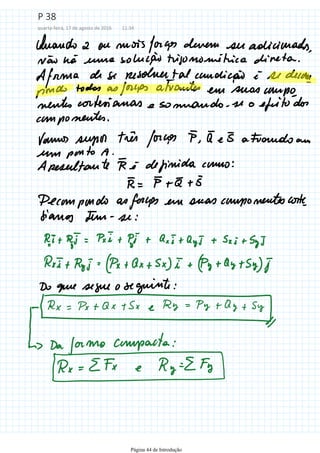 P 38
quarta-feira, 17 de agosto de 2016 11:44
Quando 2 ou mais forças devem ser adicionadas,
não há uma solução trigonométrica direta.
A forma de se resolver tal condição é se decom
pondo todas as forças atuantes em suas compo
nentes cartesianas e somando-se o efeito dos
componentes.
Vamos supor três forças P̅, Q̅ e S̅ atuando em
um ponto A.
A resultante R̅ é definida como:
R̅ = P̅ + Q̅ + S̅
Decompondo as forças em suas componentes carte
sianas tem-se:
Rxi̅ + Ryj̅ = Pxi̅ + Pyj̅ + Qxi̅ + Qyj̅ + Sxi̅ + Syj̅
Rxi̅ + Ryj̅ = (Px + Qx + Sx)i̅ + (Py + Qy + Sy)j̅
Do que segue o seguinte:
Rx = Px + Qx + Sx e Ry = Py + Qy + Sy
↳ Da forma compacta:
Rx = ΣFx e Ry = ΣFy
Página 44 de Introdução